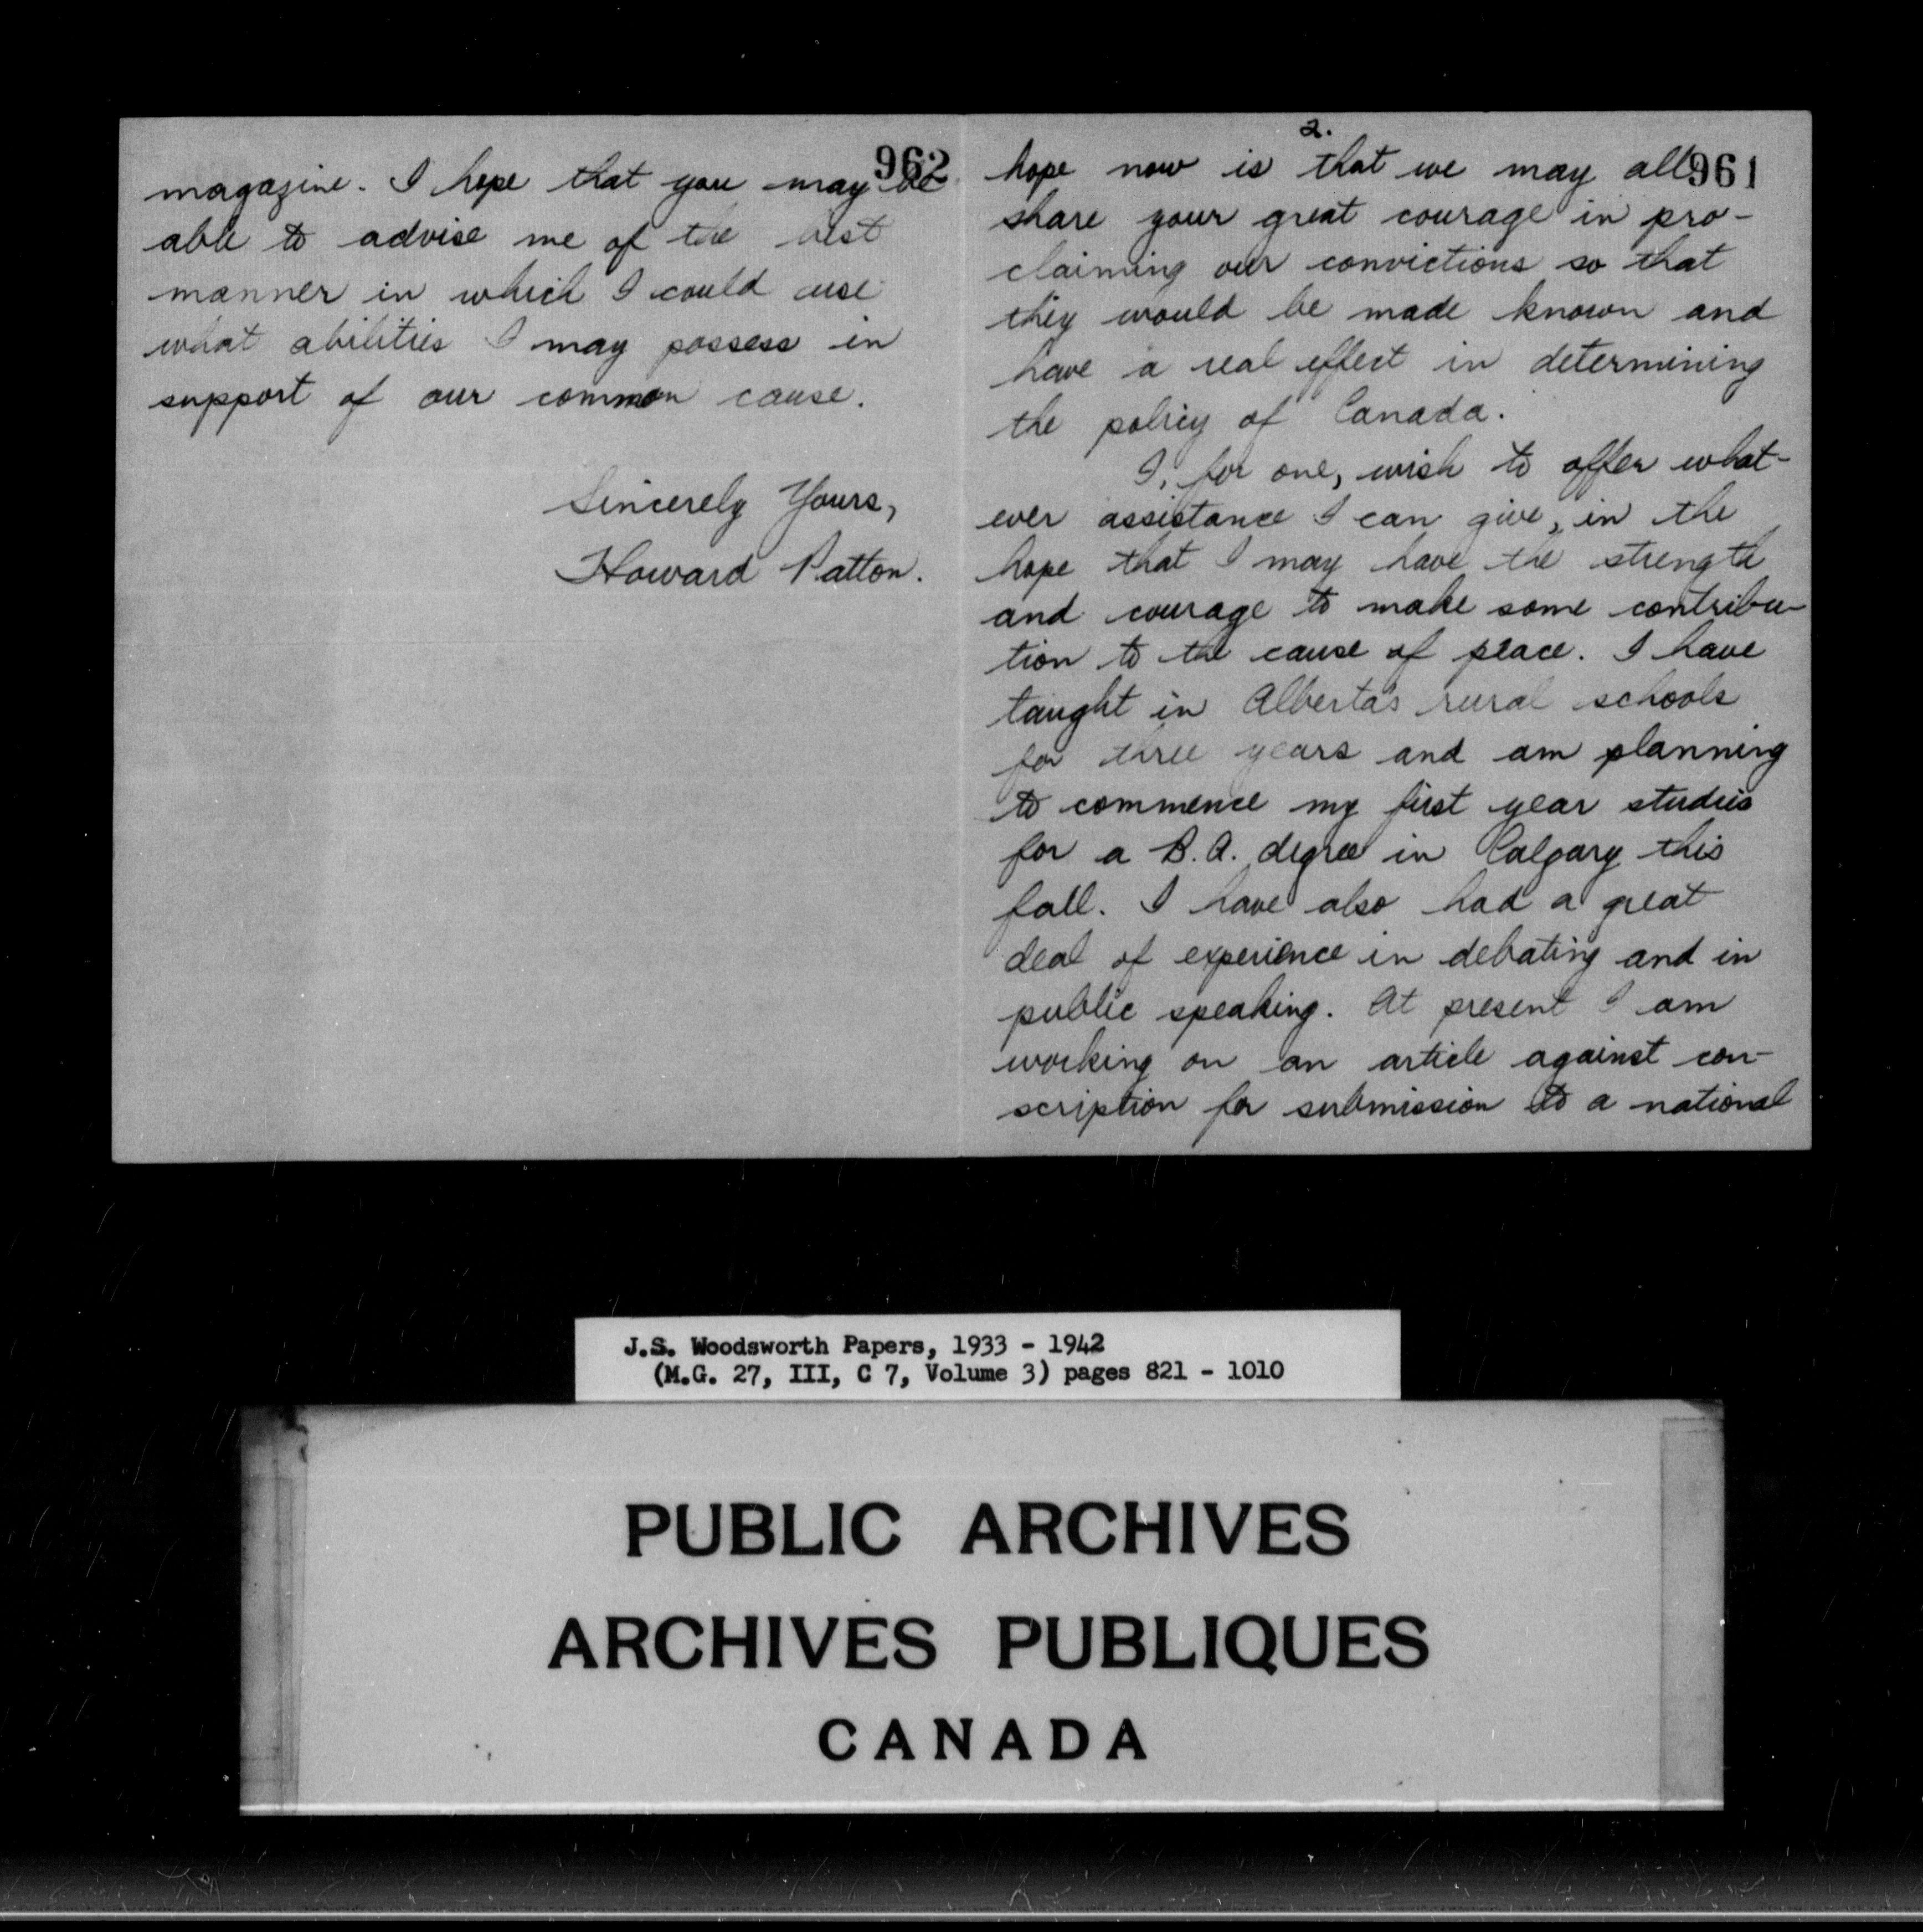 962
magazine. I hope that you may be
able to advise me of the best
manner in which I could use
what abilities I may possess in
support of our common cause.
Sincerely Yours,
Howard Patton.
2.
961
hope now is that we may all
share your great courage in pro-
claiming our convictions so that
they would be made known and
have a real effect in determining
the policy of Canada.
I, for one, wish to offer what-
ever assistance I can give, in the
hope that I may have the strength
and courage to make some contribu-
tion to the cause of peace. I have
taught in Alberta's rural schools
for three years and am planning
to commence my first year studies
for a B.A. degree in Calgary this
fall. I have also had a great
deal of experience in debating and in
public speaking. At present I am
working on an article against con-
scription for submission to a national
J.S. Woodsworth Papers, 1933 - 1942
(M.G. 27, III, C 7, Volume 3) pages 821 - 1010
PUBLIC ARCHIVES
ARCHIVES PUBLIQUES
CANADA